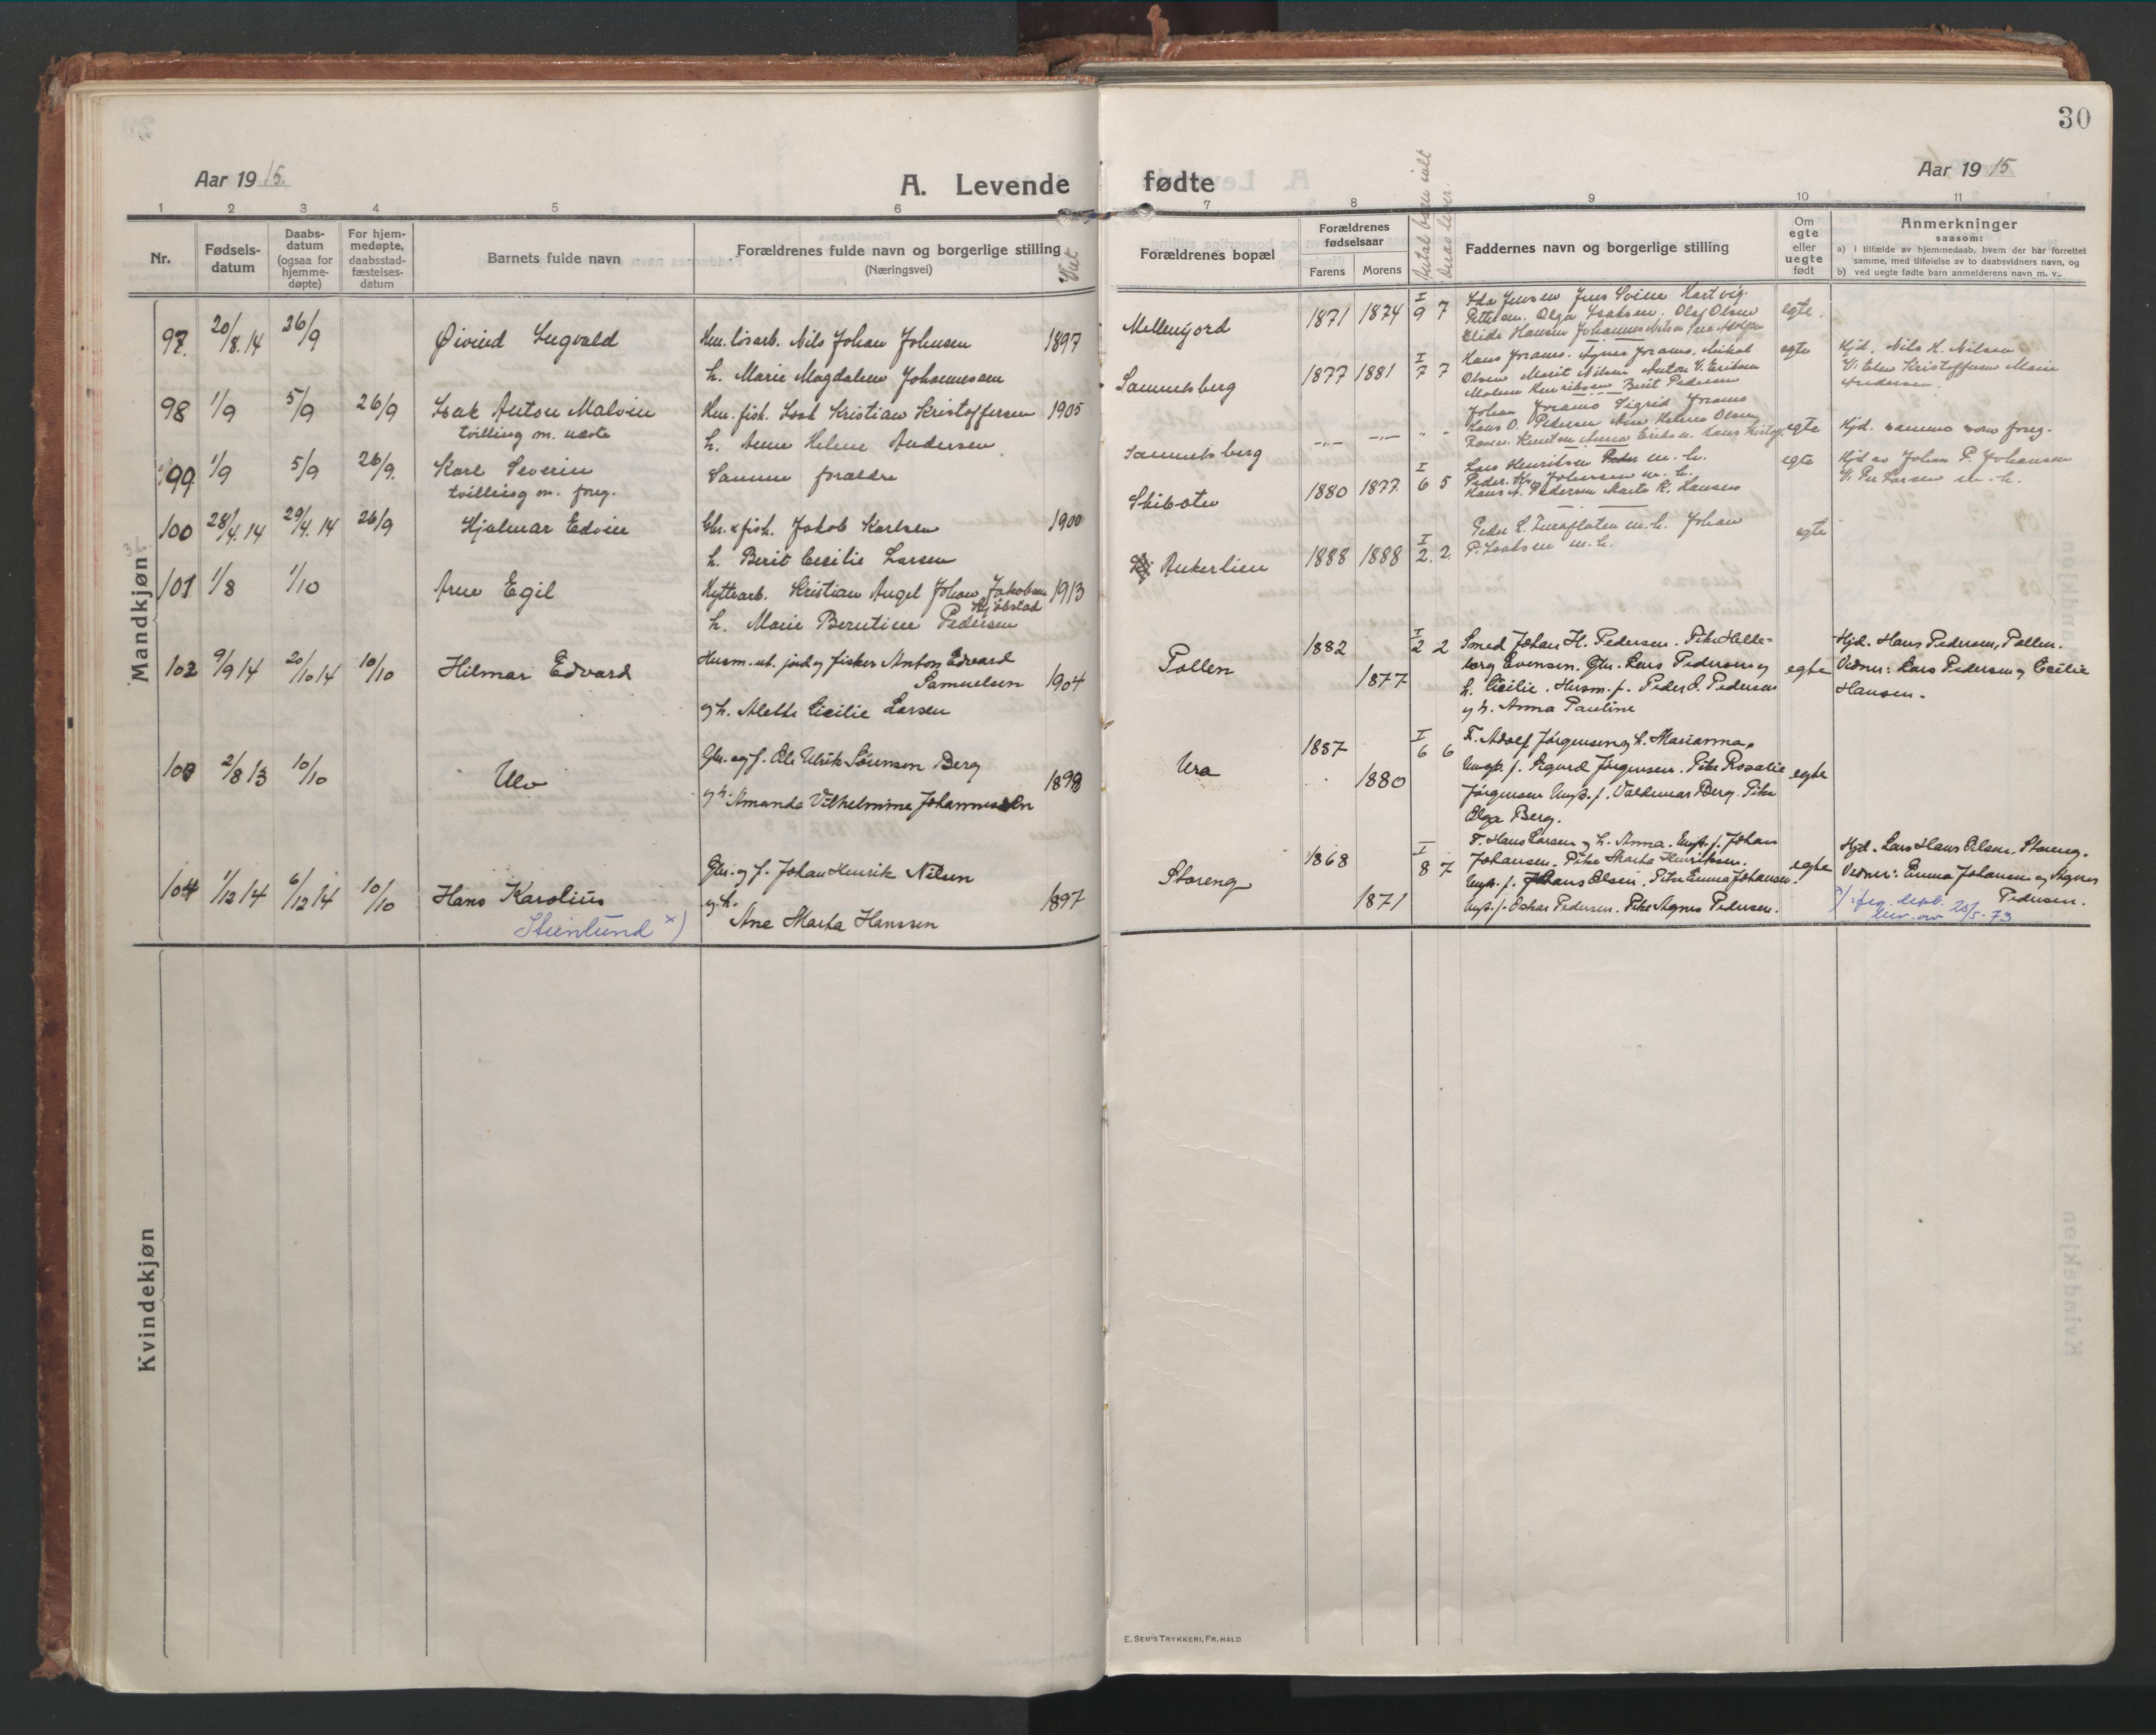 30
Aar 1915.
A. Levende
fødte
Aar 1915
1 2 3 4 5 6 7 8 9 10 11
Nr.
Fødsels-
datum
Daabs-
datum
(ogsaa for
hjemme-
døpte)
For hjem-
medøpte,
daabsstad-
fæstelses-
datum
Barnets fulde navn
Forældrenes fulde navn og borgerlige stilling
(Næringsvei)
Viet
Forældrenes bopæl
Forældrenes
fødselsaar
Farens Morens
Antal barn ialt
deraf lever.
Faddernes navn og borgerlige stilling
Om
egte
eller
uegte
født
Anmerkninger
saasom:
a) i tilfælde av hjemmedaab, hvem der har forrettet
samme, med tilføielse av to daabsvidners navn, og
b) ved uegte fødte barn anmelderens navn m. v..
Mandkjøn
97. 20/8.14 26/9 Øivind Ingvald Hm. løsarb. Nils Johan Johnsen 1897
h. Marie Magdalene Johannesen
Mellenjord 1871 1874 I 9 7
Ida Jensen Jens Svine Hartvig
Pettersen. Olga Isaksen. Olaf Olsen
Elide Hansen Johannes Nilsen
egte.
98 1/9 5/9 26/9 Isak Anton Malvin Hm. fisk. Isak Kristian Kristoffersen 1905
tvilling m. næste h. Anne Helene Andersen
Samuelsberg 1877 1881 I 7 7
Hans Joramo. Agnes Joramo. Mikal
Olsen Marit Nilsen Anton V. Eriksen
Malene Henriksen Berit Pedersen
egte
Hjd. Nils H. Nilsen
V: Elen Kristoffersen Marie
Andersen.
99 1/9 5/9 26/9. Karl Severin Samme forældre
tvilling m. foreg.
Samuelsberg -„- -„- „ „
Johan Joramo Sigrid Joramo
Hans O. Pedersen Ane Helene Olsen
Knutsen Anna Eriksen. Hans
egte
Hjd. samme som foreg.
100 28/4.14 29/4.14 26/9 Hjalmar Edvin Gbr. & fisk. Jakob Karlsen 1900
h. Berit Cecilie Larsen
Skiboten 1880 1877 I 6 5
Lars Henriksen m. h.
Peder Kr. Johansen m. h.
Hans A. Pedersen Marta K. Hansen
egte
Hjd av Johan P. Johansen
V. Per Larsen m. h.
101 1/8 1/10 Arne Egil Hyttearb. Kristian Angel Johan Jakobsen 1913
Kjøbstad
h. Marie Berntine Pedersen
Ankerlien 1888 1888 I 2. 2.
Peder L. m. h. Johan
P. Isaksen m. h.
egte
102 9/9 14 20/10 14 10/10 Hilmar Edvard Husm. ut. jord og fisker Anton Edvard
Samuelsen 1904
og h. Alette Cicilie Larsen
Pollen 1882 1877 I 2 2
Smed Johan H. Pedersen. Pike Hilde-
borg Evensen. Gbr. Lars Pedersen og
h. Cicilie. Husm. f. Peder J. Pedersen
og h. Anna Pauline
egte
Hjd. Hans Pedersen, Pollen.
Vidner: Lars Pedersen og Cecilie
Hansen.
103 2/8 13 10/10 Ulv Gbr. og f. Ole Ulrik Sørensen Berg
og h. Amanda Vilhelmine Johannesen 1898
Ura 1857 1880 I 6 6
F. Adolf Jørgensen og h. Marianna.
Ungk. f. Sigurd Jørgensen. Pike Rosalie
Jørgensen Ungk. f. Valdemar Berg. Pike
Olga Berg.
egte
104 1/12 14 6/12 14 10/10 Hans Karolius Gbr. og f. Johan Henrik Nilsen
Steinlund x) og h. 1897
Ane Marta Hanssen
Storeng 1868 1871 I 8 7
F. Hans Larsen og h. Anna. Ungk. f. Johan
Johansen. Pike Marta Henriksen.
Ungk. f. Hans Olsen. Pike Emma Johansen.
Ungk. f. Oskar Pedersen. Pike Agnes Pedersen.
egte
Hjd. Lars Hans Olsen. Storeng.
Vidner: Emma Johansen og Agnes
Pedersen.
x) iflg. dept. brev av 25/5-73
Kvindekjøn
E. SEM'S TRYKKERI, FR.HALD